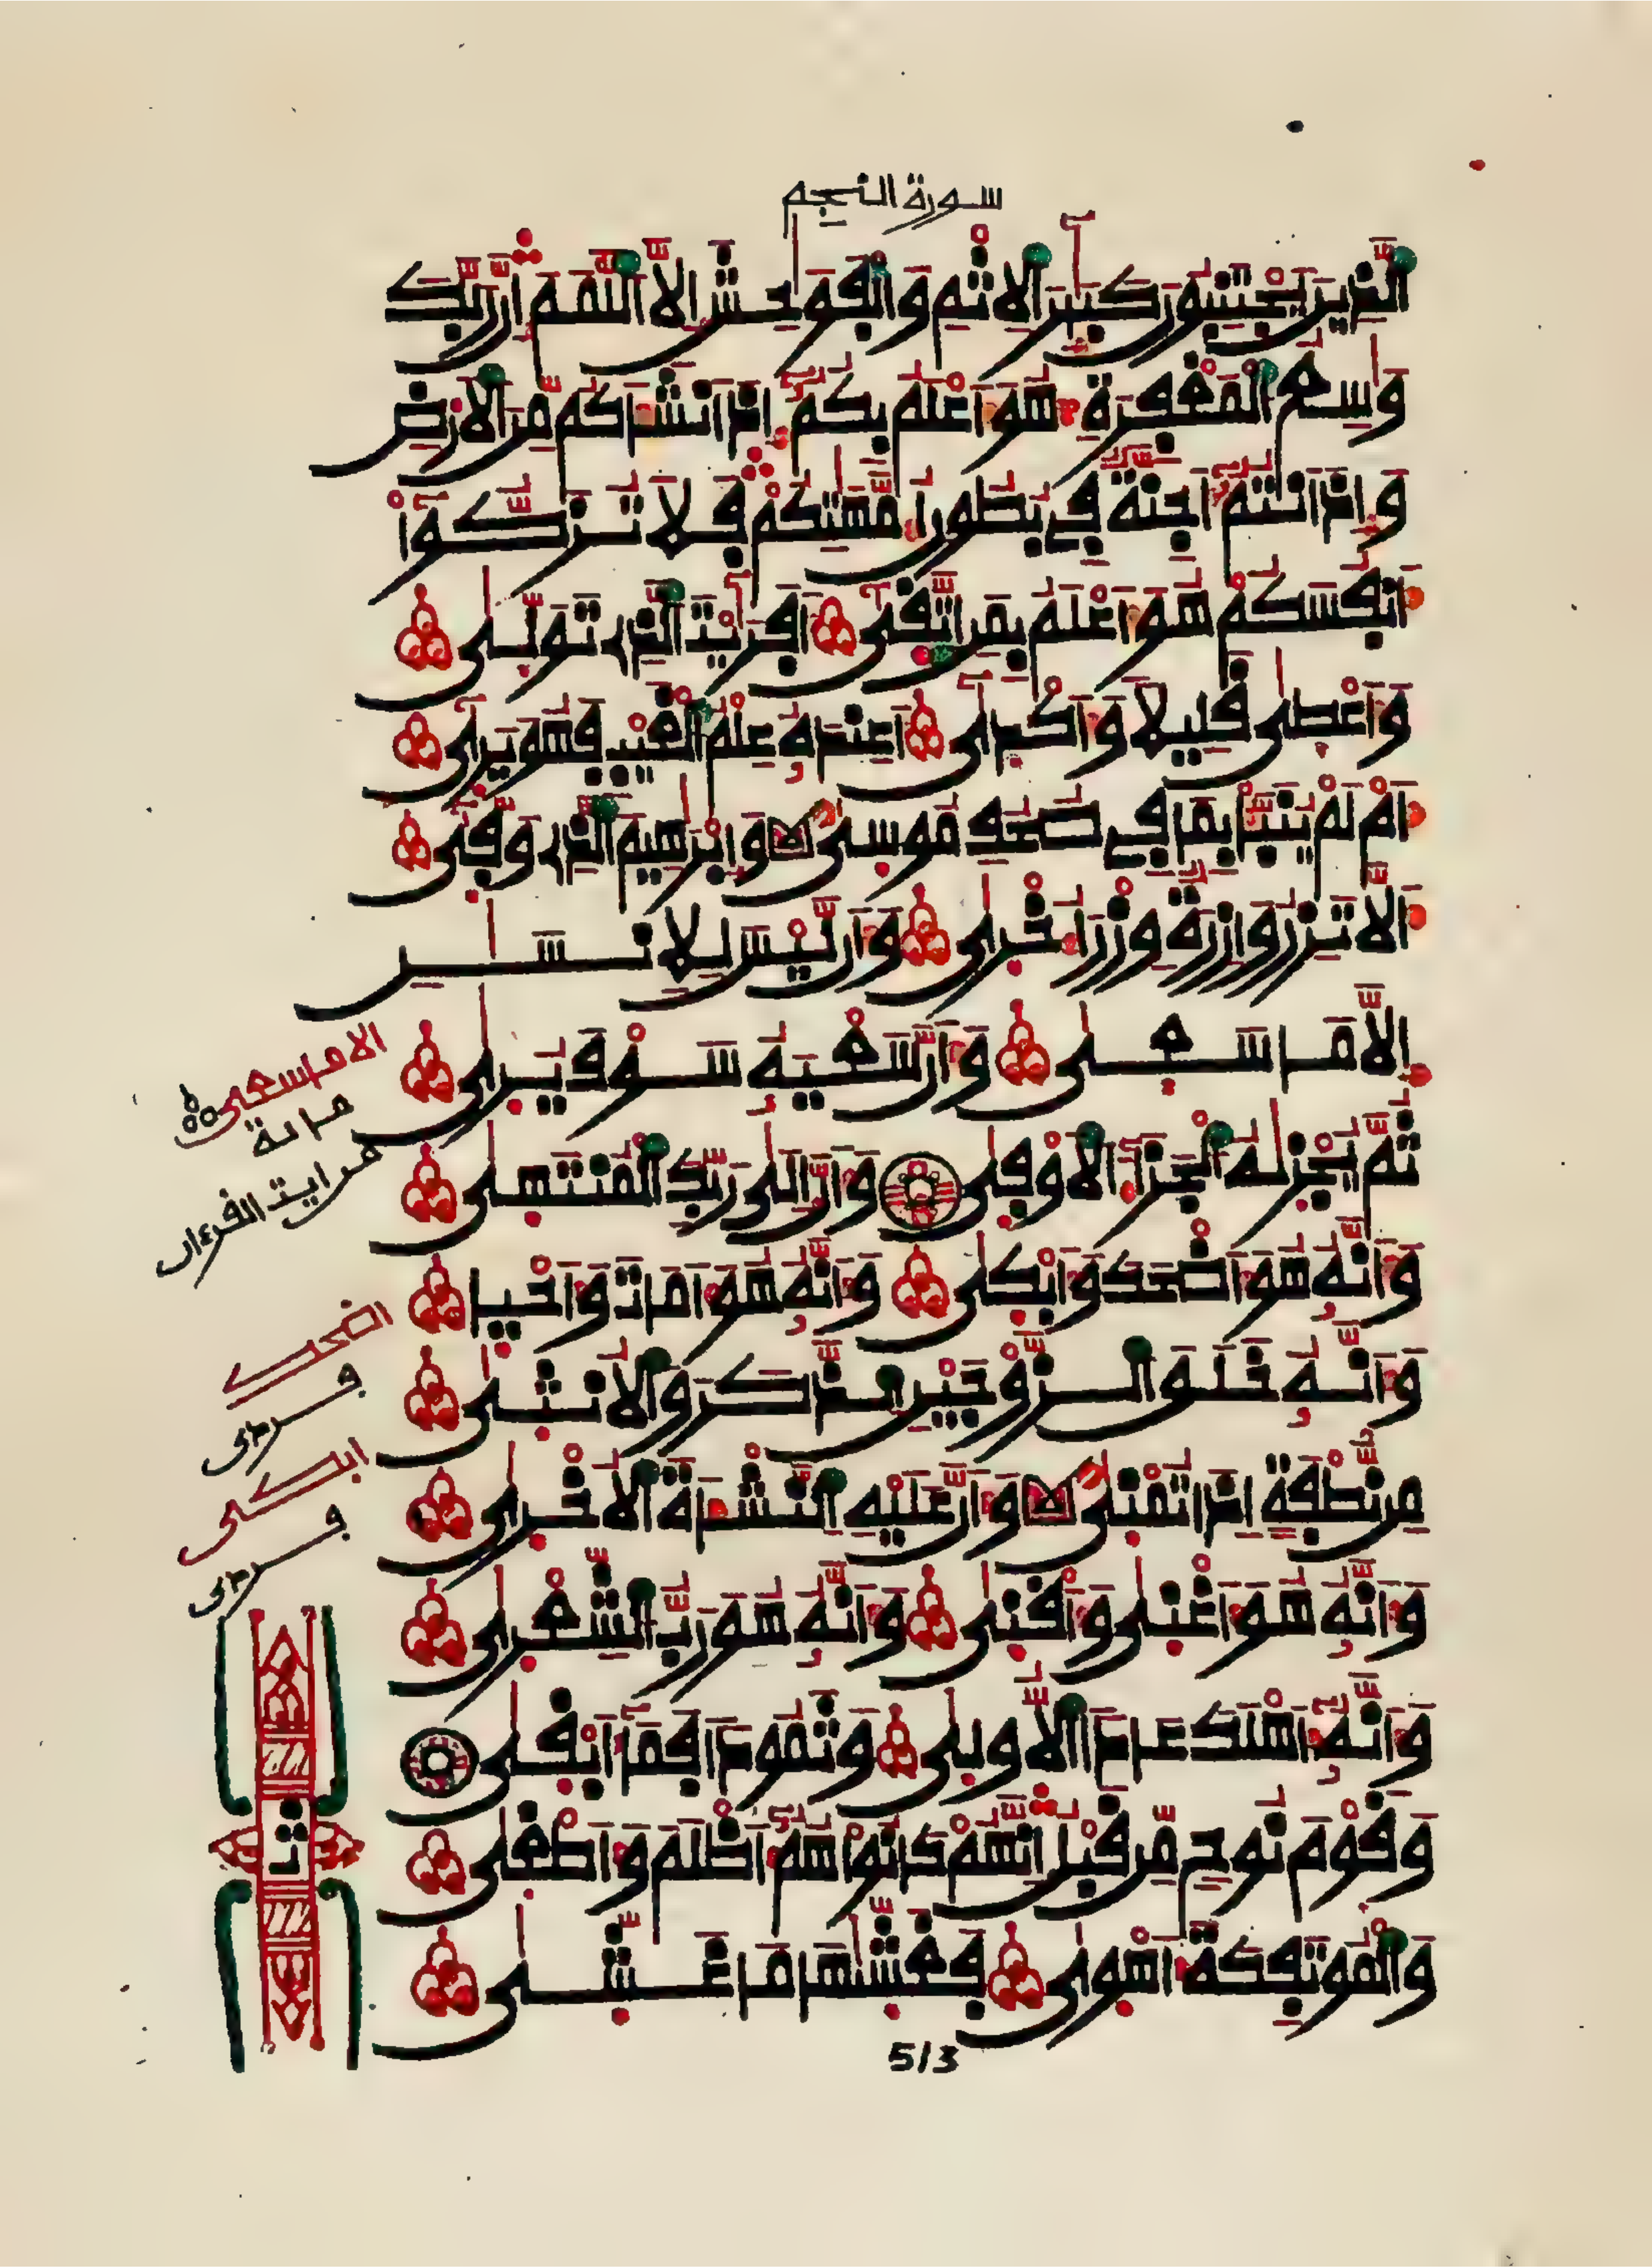 سورة النجم
اَ۬لذِينَ يَجْتَنِبُونَ كَبَٰٓئِرَ اَ۬لِاثْمِ وَالْفَوَٰحِشَ إِلَّا اَ۬للَّمَمَ إِنَّ رَبَّكَ
وَٰسِعُ اَ۬لْمَغْفِرَةِ هُوَ أَعْلَمُ بِكُمُۥٓ إِذَ اَنشَأَكُم مِّنَ اَ۬لَارْضِ
وَإِذَ اَنتُمُۥٓ أَجِنَّةٌ فِے بُطُونِ أُمَّهَٰتِكُمْ فَلَا تُزَكُّوٓاْ
أَنفُسَكُمْ هُوَ أَعْلَمُ بِمَنِ اِ۪تَّق۪ىٰٓ أَفَرَٰٓيْتَ اَ۬لذِے تَوَلّ۪ىٰ
وَأَعْط۪ىٰ قَلِيلاً وَأَكْد۪ىٰٓ أَعِندَهُۥ عِلْمُ اُ۬لْغَيْبِ فَهُوَ يَر۪ىٰٓ
أَمْ لَمْ يُنَبَّأْ بِمَا فِے صُحُفِ مُوس۪ىٰ وَإِبْرَٰهِيمَ اَ۬لذِے وَفّ۪ىٰٓ
أَلَّا تَزِرُ وَازِرَةٌ وِزْرَ أُخْر۪ىٰ وَأَن لَّيْسَ لِلِانسَٰنِ
إِلَّا مَا سَع۪ىٰ وَأَنَّ سَعْيَهُۥ سَوْفَ يُر۪ىٰ
ثُمَّ يُجْز۪ىٰهُ اُ۬لْجَزَآءَ اَ۬لَاوْف۪ىٰ وَأَنَّ إِلَىٰ رَبِّكَ اَ۬لْمُنتَه۪ىٰ
وَأَنَّهُۥ هُوَ أَضْحَكَ وَأَبْك۪ىٰ وَأَنَّهُۥ هُوَ أَمَاتَ وَأَحْي۪ا
وَأَنَّهُۥ خَلَقَ اَ۬لزَّوْجَيْنِ اِ۬لذَّكَرَ وَالُانث۪ىٰ
مِن نُّطْفَةٍ إِذَا تُمْن۪ىٰ وَأَنَّ عَلَيْهِ اِ۬لنَّشْأَةَ اَ۬لُاخْر۪ىٰ
وَأَنَّهُۥ هُوَ أَغْن۪ىٰ وَأَقْن۪ىٰ وَأَنَّهُۥ هُوَ رَبُّ اُ۬لشِّعْر۪ىٰ
وَأَنَّهُۥٓ أَهْلَكَ عَاداً اَ۬لُّاول۪ىٰ وَثَمُوداً فَمَآ أَبْق۪ىٰ
وَقَوْمَ نُوحٍ مِّن قَبْلُ إِنَّهُمْ كَانُواْ هُمُۥٓ أَظْلَمَ وَأَطْغ۪ىٰ
وَالْمُوتَفِكَةَ أَهْو۪ىٰ فَغَشّ۪ىٰهَا مَا غَشّ۪ىٰ
الا ما سعى
مائة
من ايت القرءان
اضحك
فردى
ابكى
فردى
ثمن
513